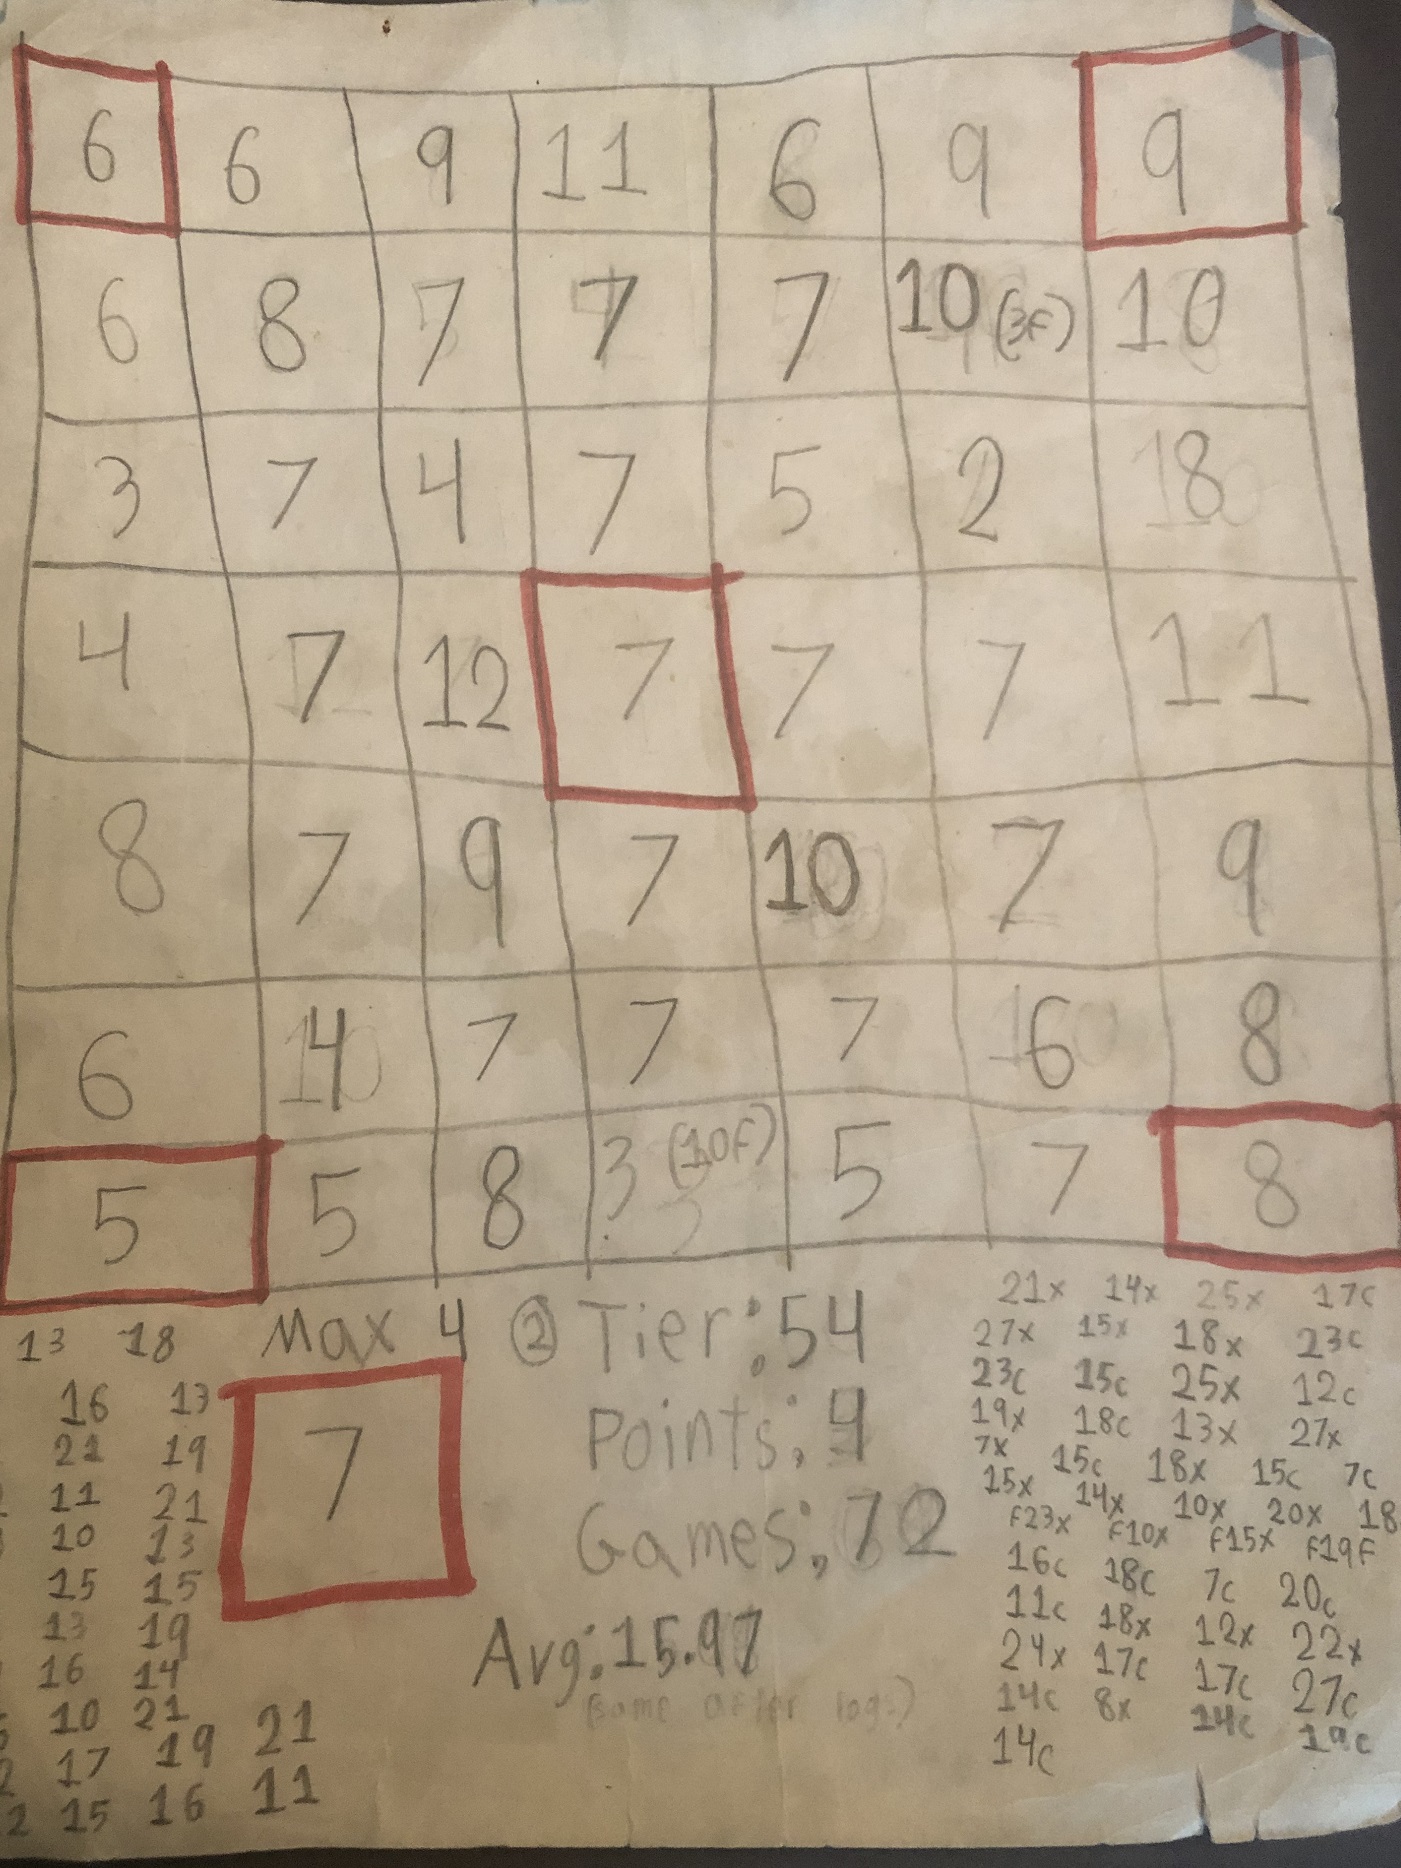 6 6 9 11 6 9 9
6 8 7 7 7 10 (3F) 10
3 7 4 7 5 2 18
4 7 12 7 7 7 11
8 7 9 7 10 7 9
6 14 7 7 7 6 8
5 5 8 3 (10F) 5 7 8
13 18
16 13
21 19
11 21
10 13
15 15
13 19
16 14
10 21
17 19 21
2 15 16 11
Max 4
7
② Tier: 54
Points: 4
Games: 72
Avg: 15.97
(same after logs)
21x 14x 25x 17c
27x 15x 18x 23c
23c 15c 25x 12c
19x 18c 13x 27x
7x 15c 18x 15c 7c
15x 14x 10x 20x 18
F23x F10x F15x F19F
16c 18c 7c 20c
11c 18x 12x 22x
24x 17c 17c 27c
14c 8x 14c 19c
14c